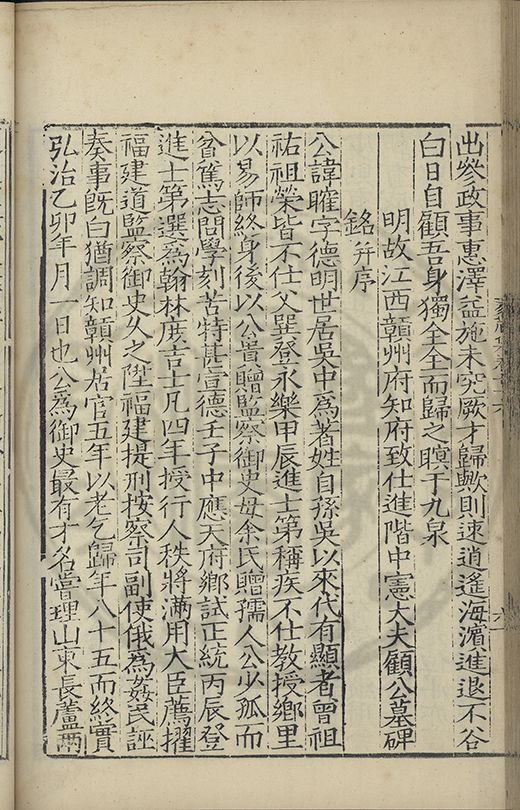 出參政事惠澤益施未究厥才歸歟則速逍遙海濵進退不谷
白日自顧吾身獨全全而歸之瞑于九泉
明故江西贛州府知府致仕進階中憲大夫顧公墓碑
銘并序
公諱㬦字德明世居吳中爲著姓自孫吳以來代有顯者曾祖
祐祖榮皆不仕父巽登永樂甲辰進士第稱疾不仕教授鄉里
以易師終身後以公貴贈監察御史母余氏贈孺人公少孤而
貧篤志問學刻苦特甚宣德壬子中應天府鄉試正統丙辰登
進士第選爲翰林庶吉士凡四年授行人秩將滿用大臣薦擢
福建道監察御史久之陞福建提刑按察司副使俄爲姦民誣
奏事旣白猶調知贛州居官五年以老乞歸年八十五而終實
弘治乙卯年月一日也公爲御史最有才名嘗理山東長蘆兩